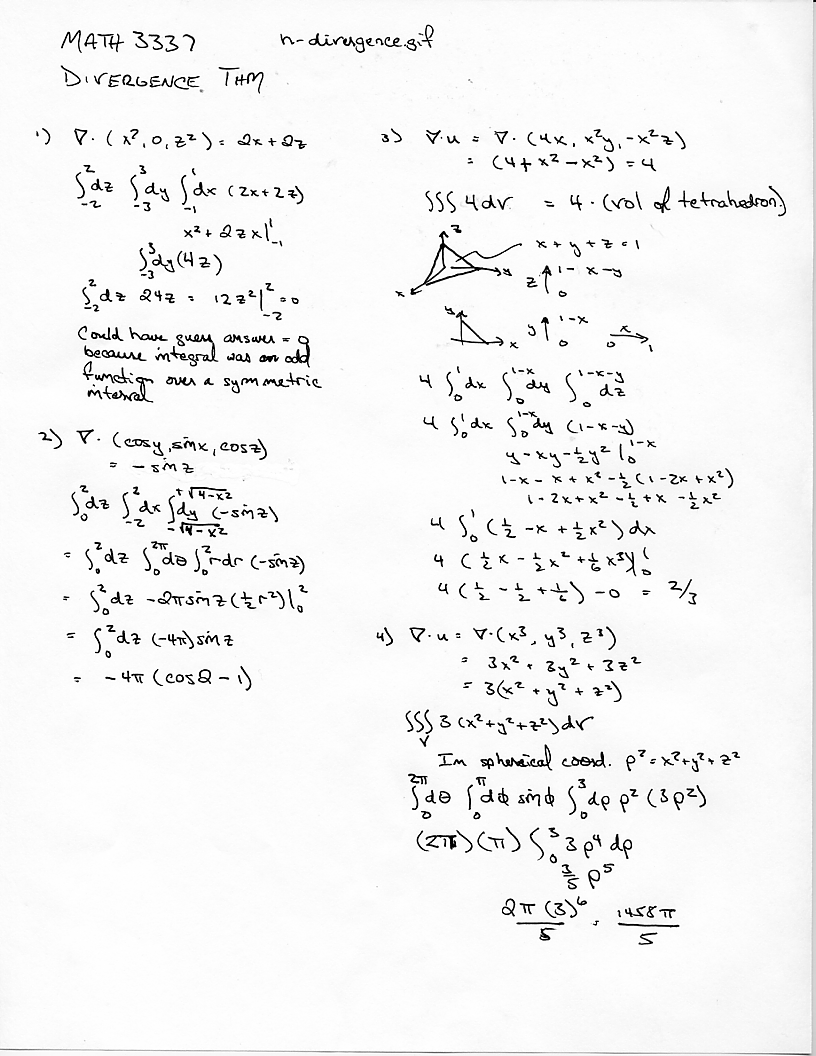 MATH 3337 n-divergence.gif
DIVERGENCE THM
1) ∇·(x², 0, z²) = 2x+2z
∫₋₂² dz ∫₋₃³ dy ∫₋₁¹ dx (2x+2z)
x² + 2zx|₋₁¹
∫₋₃³ dy(4z)
∫₋₂² dz 24z = 12z²|₋₂² = 0
Could have guess answer = 0
because integral was an odd
function over a symmetric
interval
2) ∇·(cosy, sinx, cosz)
= -sinz
∫₀² dz ∫₋₂² dx ∫_{-√(4-x²)}^{+√(4-x²)} dy (-sinz)
= ∫₀² dz ∫₀^{2π} dθ ∫₀² rdr (-sinz)
= ∫₀² dz -2π sinz (½r²)|₀²
= ∫₀² dz (-4π) sinz
= -4π (cos2 - 1)
3) ∇·u = ∇·(4x, x²y, -x²z)
= (4 + x² - x²) = 4
∫∫∫ 4dv = 4·(vol of tetrahedron)
z
x + y + z = 1
y
x
z ↑ 1-x-y
0
y
x
y ↑ 1-x
0
x
0 → 1
4 ∫₀¹ dx ∫₀^{1-x} dy ∫₀^{1-x-y} dz
4 ∫₀¹ dx ∫₀^{1-x} dy (1-x-y)
y - xy - ½y² |₀^{1-x}
1-x - x + x² - ½(1-2x+x²)
1-2x+x² - ½ + x - ½x²
4 ∫₀¹ (½ - x + ½x²) dx
4 (½x - ½x² + ⅙x³)|₀¹
4 (½ - ½ + ⅙) - 0 = 2/3
4) ∇·u = ∇·(x³, y³, z³)
= 3x² + 3y² + 3z²
= 3(x² + y² + z²)
∫∫∫ 3(x²+y²+z²)dv
V
In spherical coord. ρ² = x²+y²+z²
∫₀^{2π} dθ ∫₀^π dϕ sinϕ ∫₀³ dρ ρ² (3ρ²)
(2π)(π) ∫₀³ 3ρ⁴ dρ
3/5 ρ⁵
2π(3)⁶/5 = 1458π/5